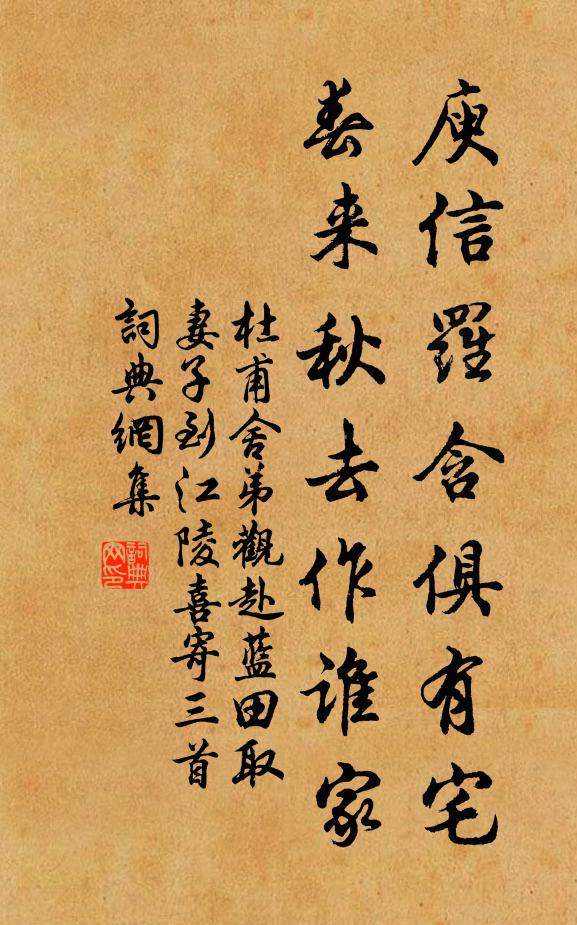 庾信羅含俱有宅
春来秋去作誰家
杜甫舍弟觀赴藍田取
妻子到江陵喜寄三首
詞典網集
詞典網印